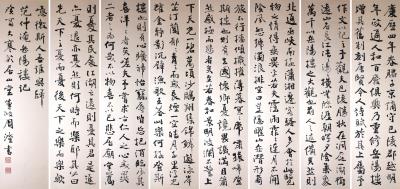 慶曆四年春滕子京謫守巴陵郡越明
年政通人和百廢具興乃重修岳陽樓
增其舊制刻唐賢今人詩賦於其上屬予
作文以記之予觀夫巴陵勝狀在洞庭
一湖銜遠山吞長江浩浩湯湯橫無際涯朝暉夕陰氣象
萬千此則岳陽樓之大觀也前人之述備矣然則
北通巫峽南極瀟湘遷客騷人多會於此覽
物之情得無異乎若夫霪雨霏霏連月不開
陰風怒號濁浪排空日星隱曜山岳潛形商
旅不行檣傾楫摧薄暮冥冥虎嘯猿啼登
斯樓也則有去國懷鄉憂讒畏譏滿目蕭
然感極而悲者矣至若春和景明波瀾不驚上
下天光一碧萬頃沙鷗翔集錦鱗游泳岸
芷汀蘭郁郁青青而或長煙一空皓月千里浮光
躍金靜影沉璧漁歌互答此樂何極登斯
樓也則有心曠神怡寵辱皆忘把酒臨風其
喜洋洋者矣嗟夫予嘗求古仁人之心或異
二者之為何哉不以物喜不以己悲居廟堂之高
則憂其民處江湖之遠則憂其君是進
亦憂退亦憂然則何時而樂耶其必曰
先天下之憂而憂後天下之樂而樂歟
噫微斯人吾誰與歸
范仲淹岳陽樓記